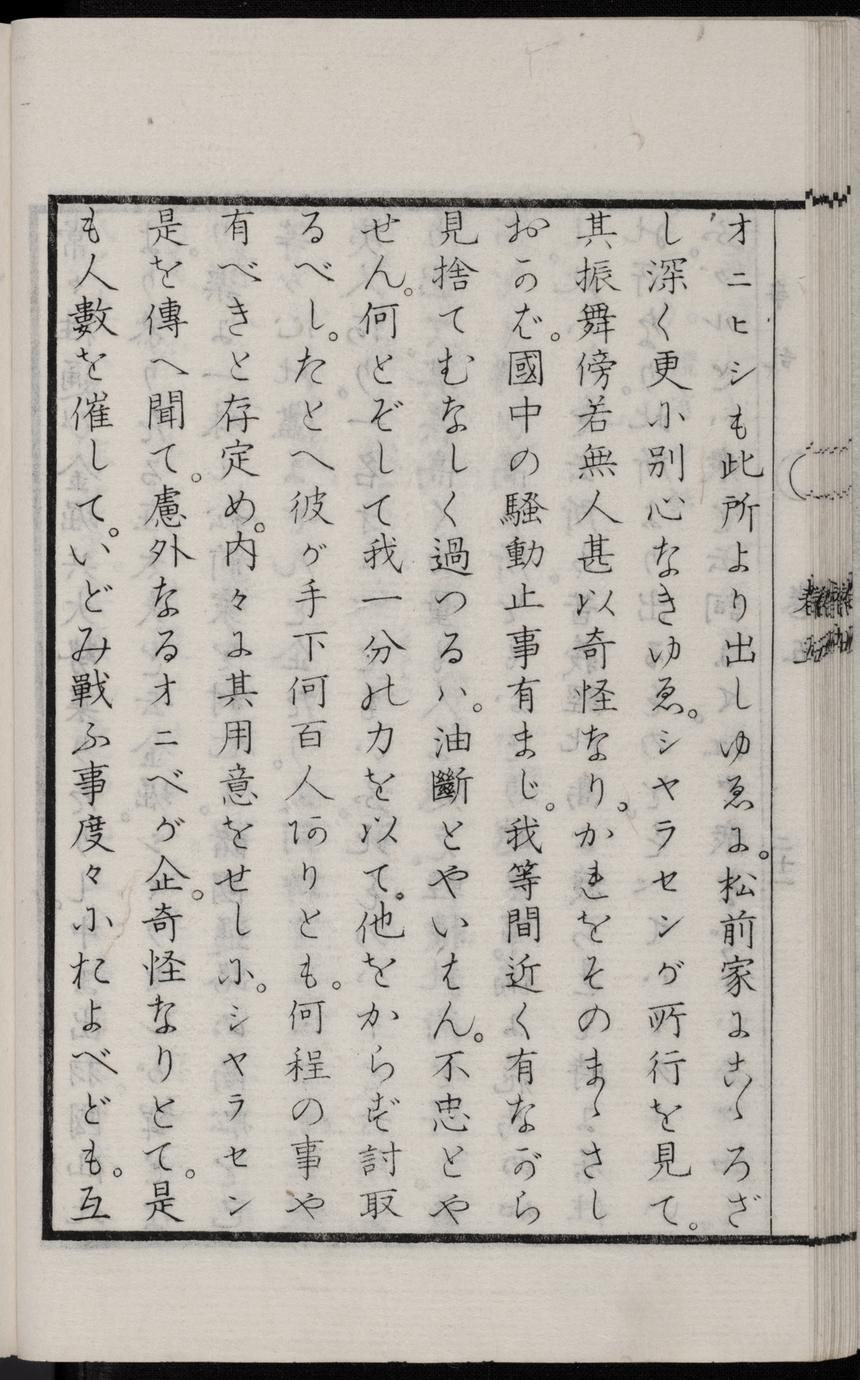 オニヒシも此所より出しゆゑに。松前家にこゝろざ
し深く更に別心なきゆゑ。シヤラセンが所行を見て。
其振舞傍若無人甚以奇怪なり。かれをそのまゝさし
おかば。國中の騷動止事有まじ。我等間近く有ながら
見捨てむなしく過つるハ。油斷とやいはん。不忠とや
せん。何とぞして我一分の力を以て。他をからず討取
るべし。たとへ彼が手下何百人ありとも。何程の事や
有べきと存定め。内々に其用意をせしに。シヤラセン
是を傳へ聞て。慮外なるオニベが企。奇怪なりとて。是
も人數を催して。いどみ戰ふ事度々におよべども。互